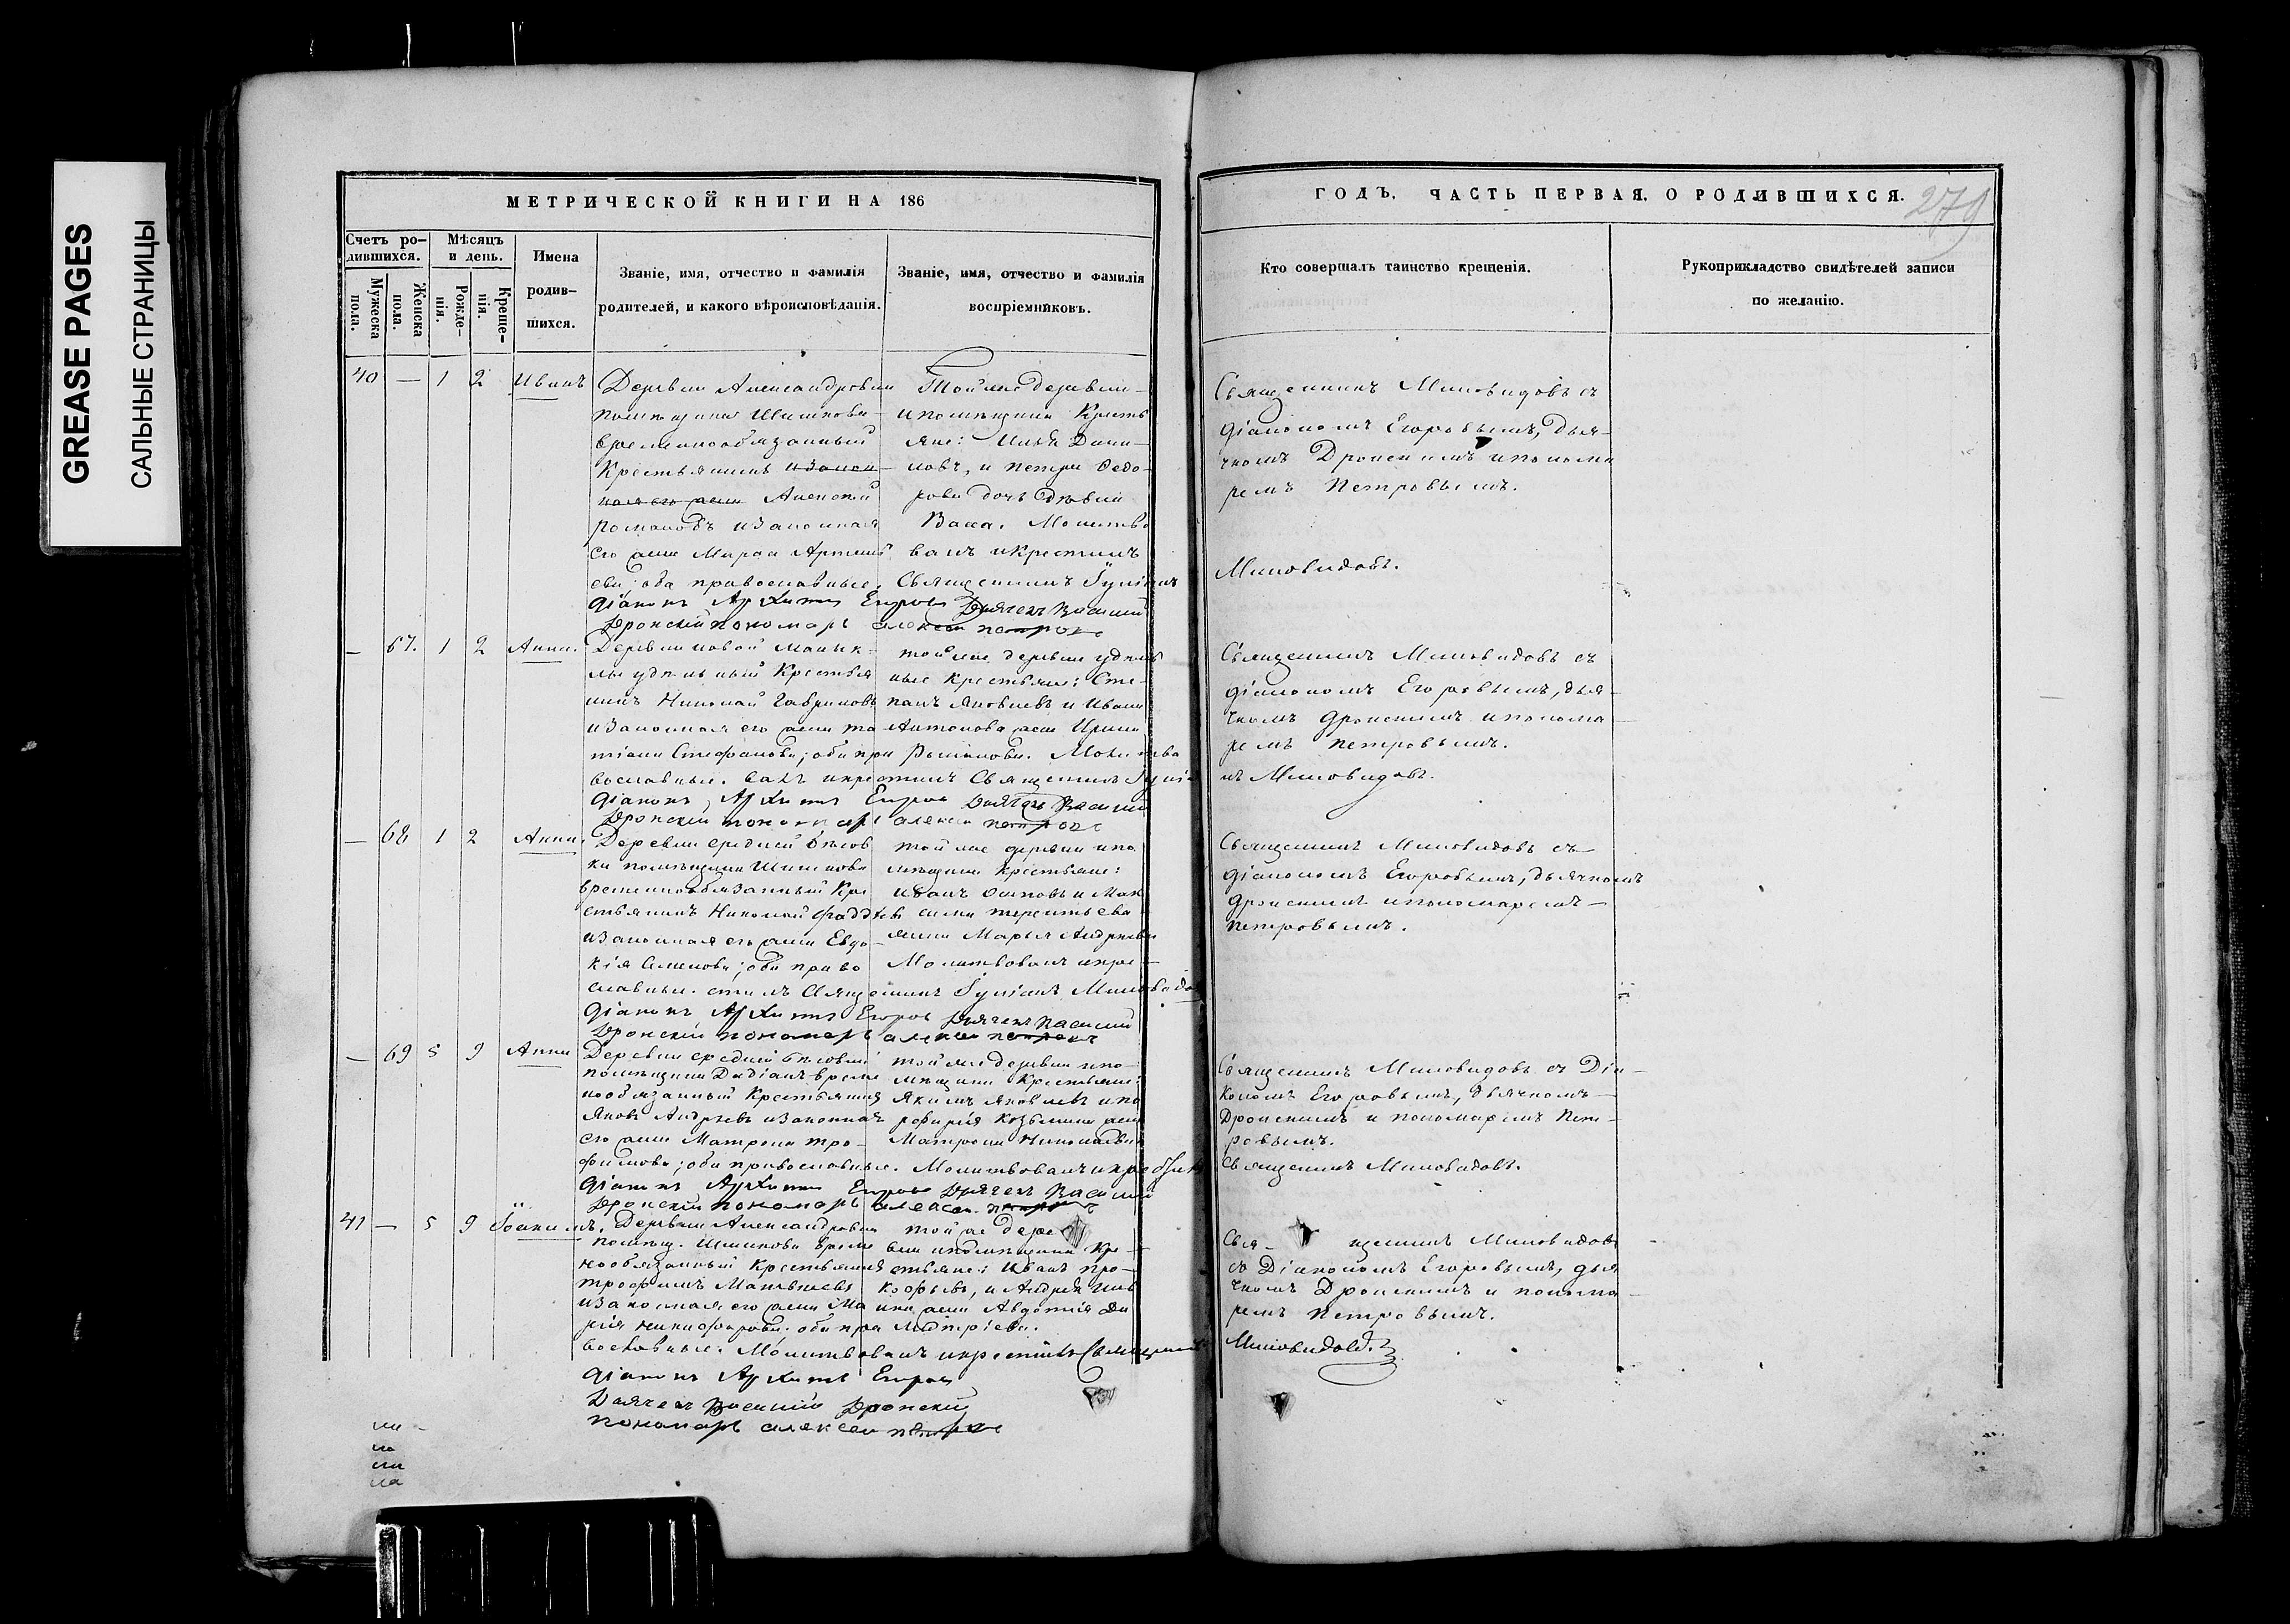 GREASE PAGES
САЛЬНЫЕ СТРАНИЦЫ
МЕТРИЧЕСКОЙ КНИГИ НА 186
ГОДЪ. ЧАСТЬ ПЕРВАЯ. О РОДИВШИХСЯ.
279
Счетъ ро-
дившихся.
Мужеска
пола.
Женска
пола.
Мѣсяцъ
и день.
Рожде-
нія.
Креще-
нія.
Имена
родив-
шихся.
Званіе, имя, отчество и фамилія
родителей, и какого вѣроисповѣданія.
Званіе, имя, отчество и фамилія
воспріемниковъ.
Кто совершалъ таинство крещенія.
Рукоприкладство свидѣтелей записи
по желанію.
40 — 1 2 Иванъ
Деревни Александровки
помѣщика Шишкова
временнообязанный
Крестьянинъ изакон
ная его жена Алексей
Романовъ изаконная
его жена Марѳа Артемь
ева; оба православные.
Тойже деревни
и помѣщика Кресть
яне: Илья Дани-
ловъ, и Петра Ѳедо-
рова дочь дѣвка
Васса. Молитво
валъ и крестилъ
Священникъ Іуліанъ
Діаконъ Архипъ Егоровъ Дьячекъ Василий
Дронскій пономарь алексеи петровъ
Священникъ Миловидовъ съ
діакономъ Егоровымъ, дья-
чкомъ Дронскимъ и понома
ремъ Петровымъ.
Миловидовъ.
— 67. 1 2 Анна.
Деревни новой Малык-
лы удѣльный Крестья
нинъ Николай Гавриловъ
изаконная его жена Та-
тіана Стефанова; оба пра
вославные.
тойже деревни удѣль
ные крестьяне: Сте-
панъ Яковлевъ и Ивана
Антонова жена Ирина
Романова. Молитво
валъ и крестилъ Священникъ Іуліа
Діаконъ Архипъ Егоровъ Дьячекъ Василий
Дронскій пономарь алексеи петровъ
Священникъ Миловидовъ съ
діакономъ Егоровымъ, дья
чкомъ Дронскимъ и понома
ремъ Петровымъ.
нъ Миловидовъ.
— 68 1 2 Анна.
Деревни средней бѣлов
ки помѣщика Шишкова
временнообязанный Кре
стьянинъ Николай Фаддѣев
изаконная его жена Евдо
кія Семенова; оба право
славные.
тойже деревни и по
мѣщика Крестьяне:
Иванъ Осиповъ и Мак
сима терентьева
жена Марья Андреева
Молитвовалъ и кре-
стилъ Священникъ Іуліанъ Миловидовъ
Діаконъ Архипъ Егоровъ Дьячекъ Василий
Дронскій пономарь алексеи петровъ
Священникъ Миловидовъ съ
діакономъ Егоровымъ, дьячкомъ
Дронскимъ и пономаремъ
Петровымъ.
— 69 5 9 Анна
Деревни средней бѣловки
помѣщика Дадіанъ време
нообязанный Крестьянинъ
Яковъ Андреевъ изаконная
его жена Матрона Тро-
фимова; оба православные.
тойже деревни и по-
мѣщика Крестьяне:
Якимъ Яковлевъ и по
рфирія Козьмина жена
Матрона Николаева
Молитвовалъ и крестилъ
Діаконъ Архипъ Егоровъ Дьячекъ Василий
Дронскій пономарь алексеи петровъ
Священникъ Миловидовъ съ Діа-
кономъ Егоровымъ, дьячкомъ
Дронскимъ и пономаремъ Пет-
ровымъ.
Священникъ Миловидовъ.
41 — 5 9 Іоакимъ.
Деревни Александровки
помѣщ. Шишкова време
нообязанный Крестьянинъ
трофимъ Матвѣевъ
изаконная его жена Ма
рія Никифорова. оба пра
вославные.
той же дере
вни и помѣщика Кре-
стьяне: Иванъ Про-
кофьевъ, и Андрея
жена Авдотія Ди
митріева.
Молитвовалъ и крестилъ Священникъ
Діаконъ Архипъ Егоровъ
Дьячекъ Василий Дронскій
пономарь алексеи петровъ
Свя- щенникъ Миловидовъ
съ Діакономъ Егоровымъ, дья
чкомъ Дронскимъ и понома
ремъ Петровымъ.
Миловидовъ.